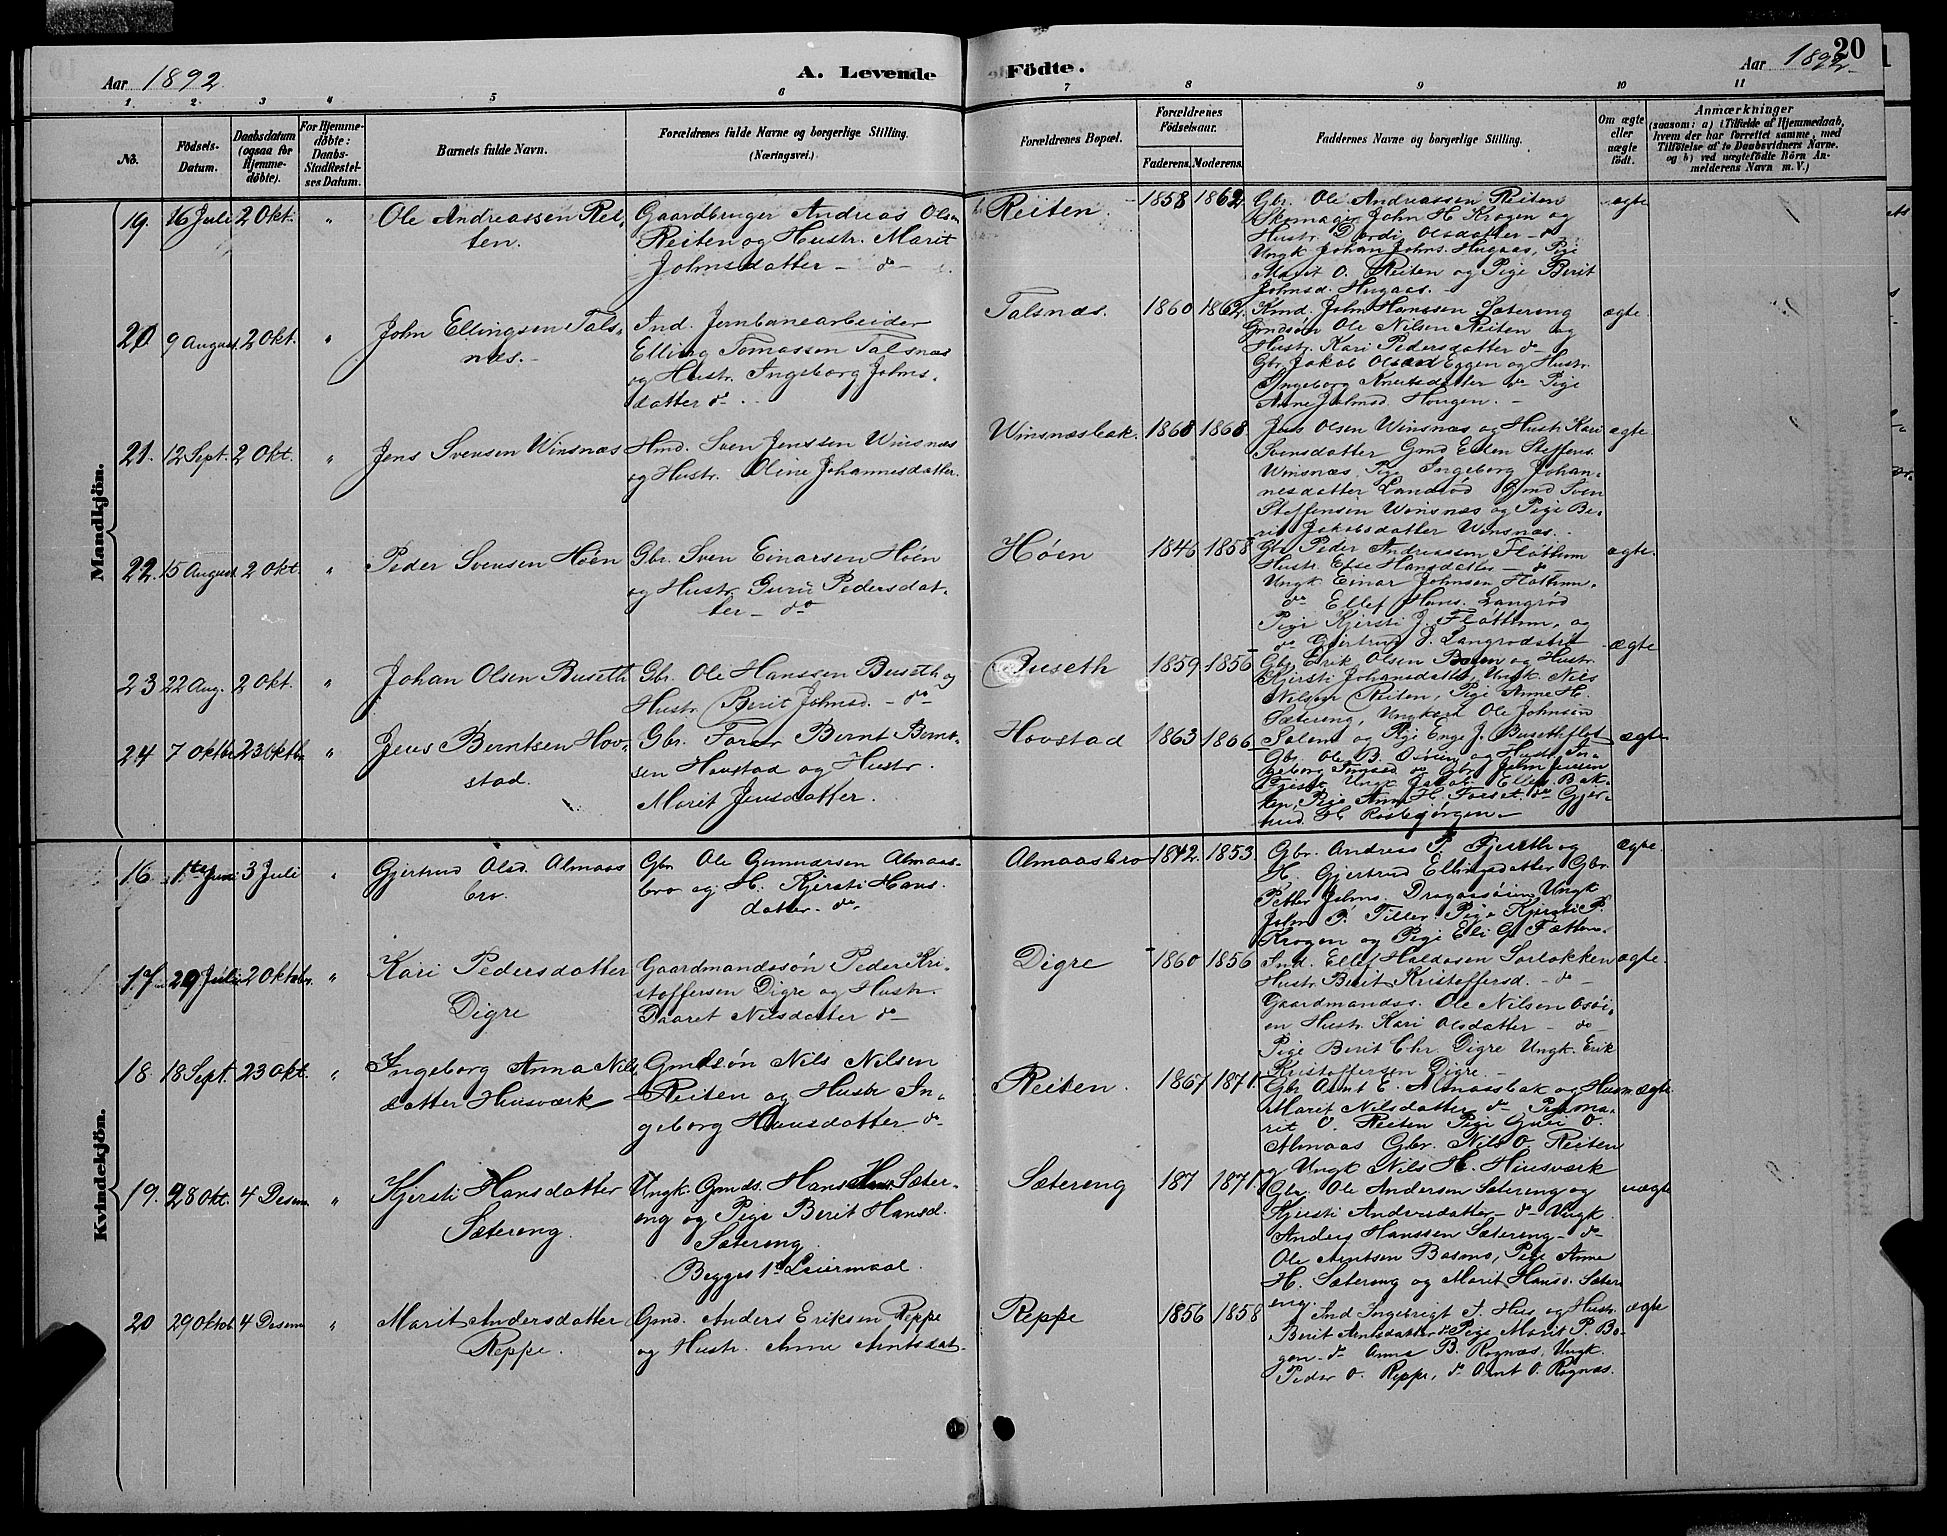 Aar 1892.
A. Levende Födte.
Aar 1892.
20
1 2 3 4 5 6 7 8 9 10 11
No.
Födsels-Datum.
Daabsdatum (ogsaa for Hjemme-döbte).
For Hjemme-döbte: Daabs-Stadfæstel-ses Datum.
Barnets fulde Navn.
Forældrenes fulde Navne og borgerlige Stilling. (Næringsvei.)
Forældrenes Bopæl.
Forældrenes Födselsaar.
Faderens. Moderens.
Faddernes Navne og borgerlige Stilling.
Om ægte eller uægte födt.
Anmærkninger
(saasom: a) i Tilfælde af Hjemmedaab,
hvem der har forrettet samme, med
Tilföielse af to Daabsvidners Navne.
og b) ved uægtefödte Börn An-
melderens Navn m. V.)
Mandkjön.
19. 16 Juli 2 Okt. "
Ole Andreassen Rei-
ten.
Gaardbruger Andreas Olsen
Reiten og Hustr. Marit
Johnsdatter - do -
Reiten. 1858 1862
Gbr. Ole Andreassen Reiten
Skomager John H. Krogen og
Hustr. Dordi Olsdatter - do
Ungk. Johan Johns. Hugaas, Pige
Marit O. Reiten og Pige Berit
Johnsd. Hugaas. -
ægte
20. 9 August. 2 Okt. "
John Ellingsen Tals-
næs. -
Ind. Jernbanearbeider
Elling Tomassen Talsnæs
og Hustr. Ingeborg Johns-
datter do
Talsnæs. 1860 1862.
Kmd. John Hanssen Sætereng
Gmdsön Ole Nilsen Reiten og
Hustr. Kari Pedersdatter do
Gbr. Jakob Olsen Eggen og Hustr.
Ingeborg Knutsdatter do Pige
Anne Johnsd. Hougen. -
ægte
21. 12 Sept. 2 Okt. "
Jens Svensen Winsnæs
Hmd. Sven Jenssen Winsnæs
og Hustr. Oline Johannesdatter.
Winsnæsbak. 1868 1868
Jens Olsen Winsnæs og Hustr. Kari
Svensdatter Gmd Esten Steffens.
Winsnæs, Pige Ingeborg Johan-
nesdatter Landrød Gmd Sven
Steffensen Winsnæs og Pige Be-
rit Jakobsdatter Winsnæs.
ægte
22. 15 August. 2 Okt. "
Peder Svensen Høen
Gbr. Sven Einarsen Høen
og Hustr. Guru Pedersdat-
ter - do
Høen 1846 1858
Gbr. Peder Andreassen Fløttum
Hustr. Else Hansdatter - do -
Ungk. Einar Johnsen Fløttum.
do Ellef Hans. Langrød
Pige Kjersti J. Fløttum, og
do Gjertrud J. Langrødsbak
ægte.
23 22 Aug. 2 Okt. "
Johan Olsen Buseth
Gbr. Ole Hanssen Buseth og
Hustr. Berit Johnsd. - do
Buseth 1859 1856
Gbr. Erik Olsen Boren og Hustr.
Kjersti Johansdatter, Ungk. Nils
Nilsen Reiten, Pige Anne H.
Sætereng, Ungkarl Ole Johnsen
Solem og Pige Enge J. Busethflot
ægte
24 7 Oktbr. 23 Oktbr. "
Jens Berntsen Hov-
stad.
Gbr. Bernt Bernt-
sen Hovstad og Hustr.
Marit Jensdatter.
Hovstad 1863 1866
Gbr. Ole B. Osøien og Hustr. In-
geborg do Gbr. John Jensen
Ungk. Jakob Ellefs. Bak-
ken, Pige Anne H. Foeset. do Gjer-
trud H. Rostbjørgen. -
ægte
Kvindekjön.
16 1ste Juni 3 Juli "
Gjertrud Olsd. Almaas
bro.
Gbr. Ole Gunnersen Almaas-
bro og H. Kjersti Hans-
datter. do.
Almaasbro 1842. 1853.
Gbr. Andreas P. Fjeseth og
H. Gjertrud Ellingsdatter Gbr.
Petter Johns. Dragaasøien Ungk.
John P. Tiller. Pige Kjersti P.
Krogen og Pige Eli G. Fætten.
ægte.
17. 29 Juli 2 Oktober. "
Kari Pedersdatter
Digre
Gaardmandssön Peder Kri-
stoffersen Digre og Hustr.
Gaaret Nilsdatter do -
Digre 1860 1856
Ind. Ellef Haldosen Sorløkken
Hustr. Berit Kristoffersd. - do -
Gaardmandss. Ole Nilsen Osöi-
en Hustr. Kari Olsdatter - do -
Pige Berit Chr. Digre Ungk. Erik
Kristoffersen Digre. -
ægte.
18. 18 Sept. 23 Okt. "
Ingeborg Anna Nils
datter Husværk
Gmdsön Nils Nilsen
Reiten og Hustr. In-
geborg Hansdatter. do
Reiten. 1867 1871.
Gbr. Arnt E. Almaasbak og Hustr
Marit Nilsdatter do Pige Ma-
rit O. Reiten Pige Guri O.
Almaas Gbr. Nils O. Reiten
og Ungk. Nils H. Husværk
ægte.
19. 28 Okt. 4 Desem. "
Kjersti Hansdatter
Sætereng.
Ungk. Gmds. Hans Hans. Sæter-
eng og Pige Berit Hansd.
Sætereng.
Begges 1ste Leiermaal.
Sætereng 187 1871.
Gbr. Ole Andersen Sætereng og
Kjersti Andersdatter - do - Ungk.
Anders Hanssen Sætereng - do
Ole Arntsen Basmo, Pige Anne
H. Sætereng og Marit Hansd. Sæter
eng.
uægte
20 29 Oktob. 4 Desem "
Marit Andersdatter
Reppe.
Gmd. Anders Eriksen Reppe
og Hustr. Anne Arntsdat-
Reppe 1856 1858
Ind Ingebrigt S. Hus og Hustr.
Berit Arntsdatter do Pige Marit P. Bo-
gen - do Anna B. Rognæs, Ungk.
Peder O. Reppe, do Arnt O. Rognæs.
ægte